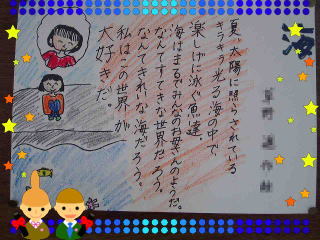 海
夏、太陽に照らされている
キラキラ光る海の中で、
楽しげに泳ぐ魚達。
海はまるでみんなのお母さんのようだ。
なんてすてきな世界だろう。
なんてきれいな海だろう。
私はこの世界が
大好きだ。